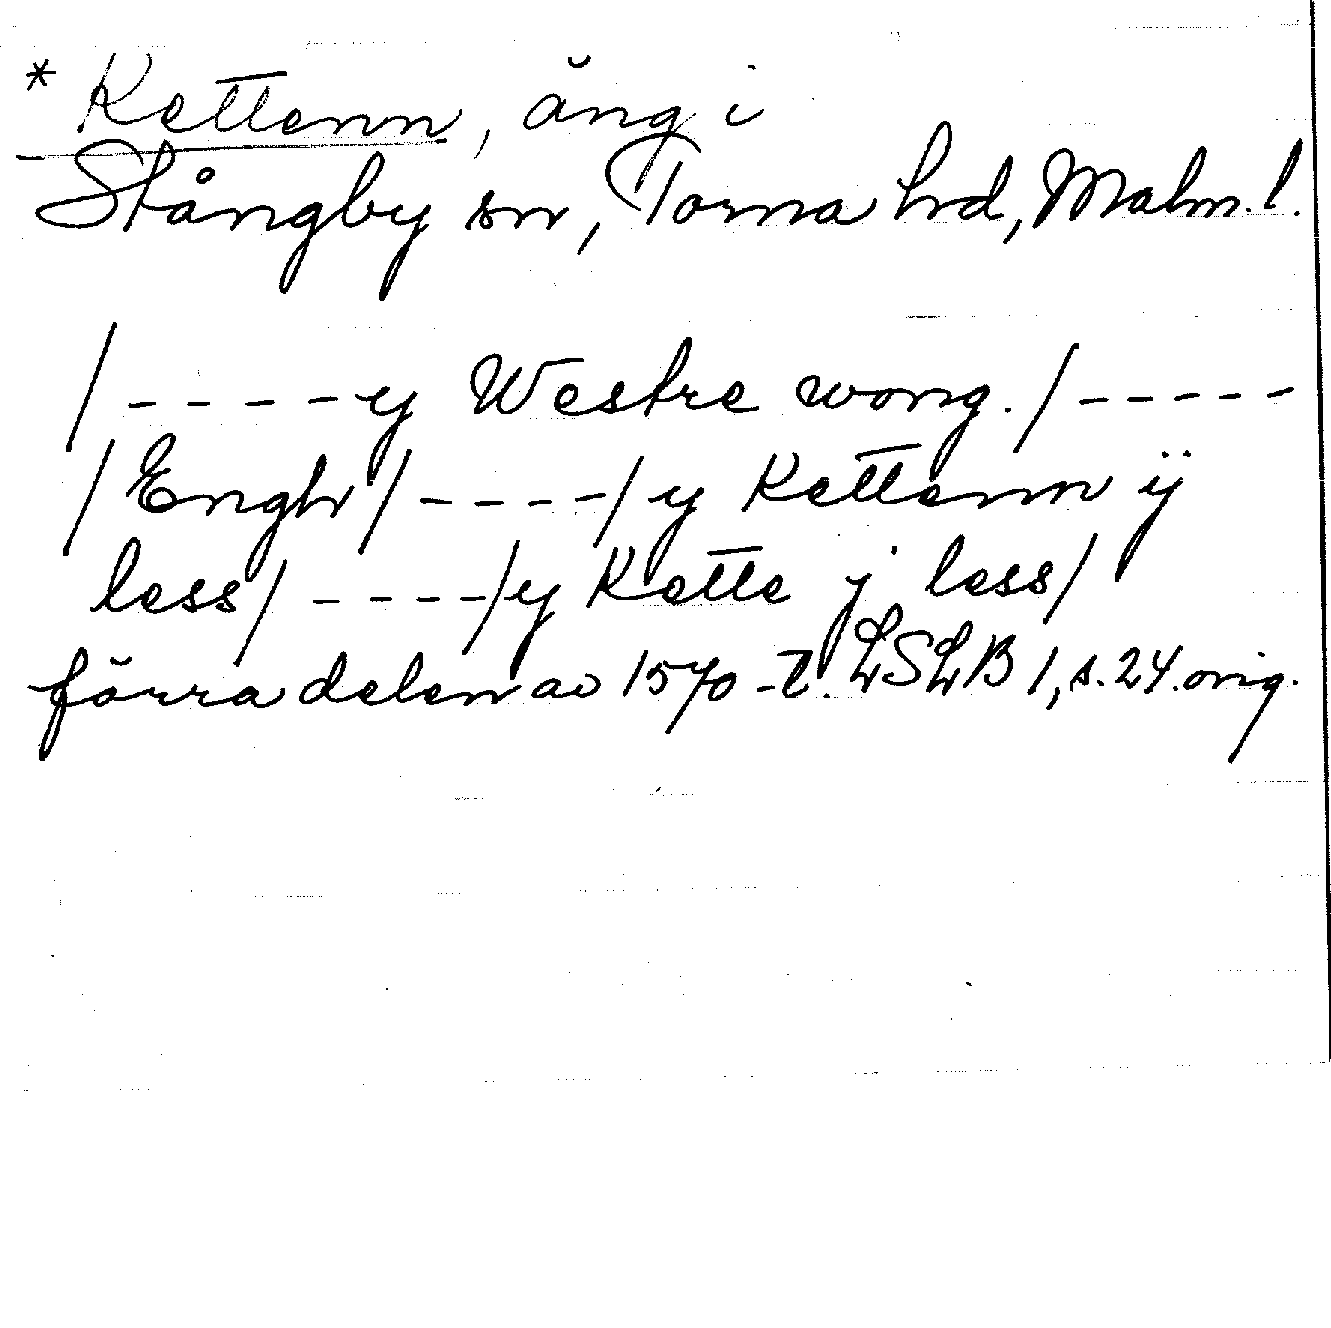 * Kettenn, äng i
Stångby sn, Torna hrd, Malm. l.
/----y Westre wong./-----
/Engh/----/y Kettenn ÿ
less/----/y Kette j less/
förra delen av 1570-t. LSLB 1, s. 24. orig.